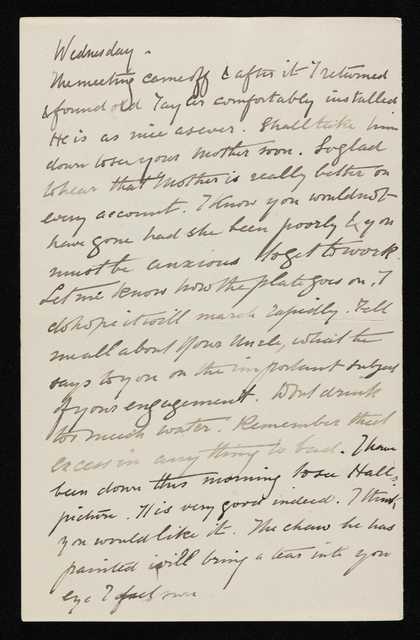 Wednesday.
The meeting came off & after it I returned
& found old Tayler comfortably installed
He is as nice as ever. Shall take him
down to see your Mother soon. So glad
to hear that Mother is really better on
every account. I know you would not
have gone had she been poorly & you
must be anxious to get to work.
Let me know how the plate goes on, I
do hope it will march rapidly. Tell
me all about your Uncle, what he
says to you on the important subject
of your engagement. Dont drink
too much water. Remember that
excess in anything is bad. I have
been down this morning to see Halls
picture. It is very good indeed. I think
you would like it. The chaw he has
painted will bring a tear into your
eye I feel sure